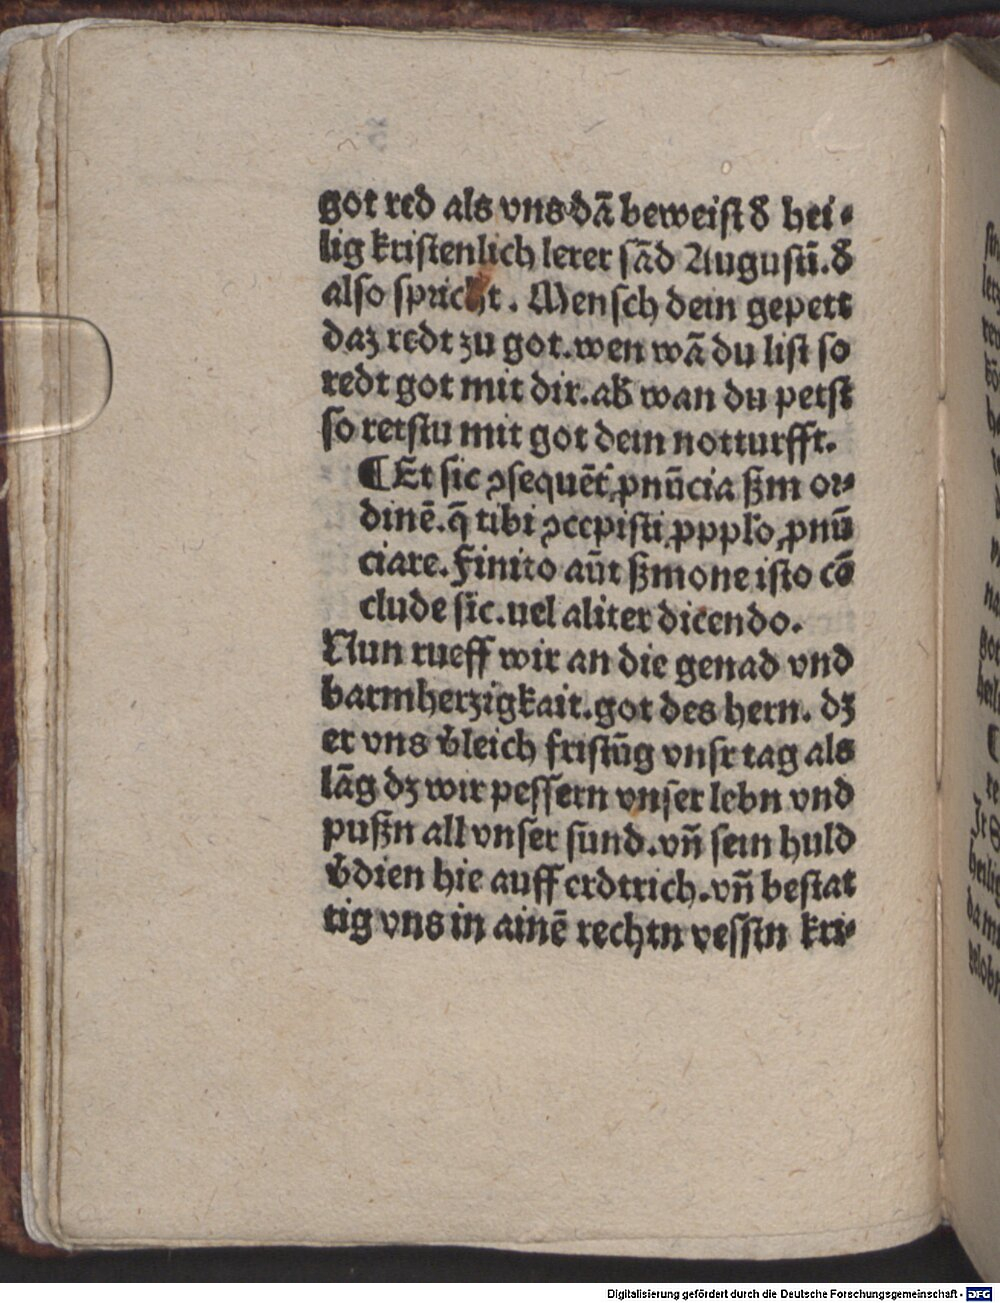 got red als vns dã beweist d̕ hei⸗
lig kristenlich lerer sãd Augustĩ. d̕
also spricht. Mensch dein gepett
daz redt zu got. wen wã du list so
redt got mit dir. ab̕ wan du petst
so retstu mit got dein notturfft.
¶ Et sic ꝯsequẽt̕ ꝓnũcia ẞm or⸗
dinẽ. q̃ tibi ꝯcepisti ꝓ pplo ꝓnũ
ciare. Finito aũt ẞmone isto cõ
clude sic. uel aliter dicendo.
Nun rueff wir an die genad vnd
barmherzigkait. got des hern. dz
er vns v̕leich fristũg vnsr tag als
lãg dz wir pessern vnser lebn vnd
pußn all vnser sund. vñ sein huld
v̕dien hie auff erdtrich. vñ bestat
tig vns in ainẽ rechtn vesstn kri⸗
Digitalisierung gefördert durch die Deutsche Forschungsgemeinschaft - DFG